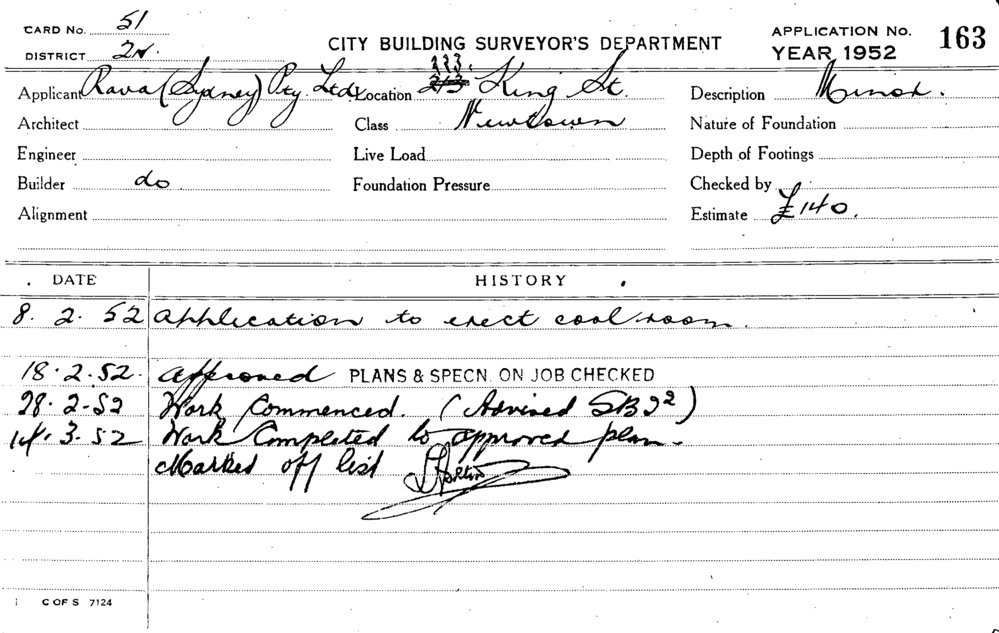 CARD No. 51
DISTRICT 2N.
CITY BUILDING SURVEYOR'S DEPARTMENT
APPLICATION No. 163
YEAR 1952
Applicant Rava (Sydney) Pty. Ltd. Location 233. 213 King St. Description Minor.
Architect Class Newtown Nature of Foundation
Engineer Live Load Depth of Footings
Builder do Foundation Pressure Checked by
Alignment Estimate £140.
DATE HISTORY
8. 2. 52 Application to erect cool room.
18. 2. 52. Approved PLANS & SPECN. ON JOB CHECKED
28. 2-52 Work Commenced. (Advised
14. 3. 52 Work Completed to approved plan.
Marked off list
C OF S 7124